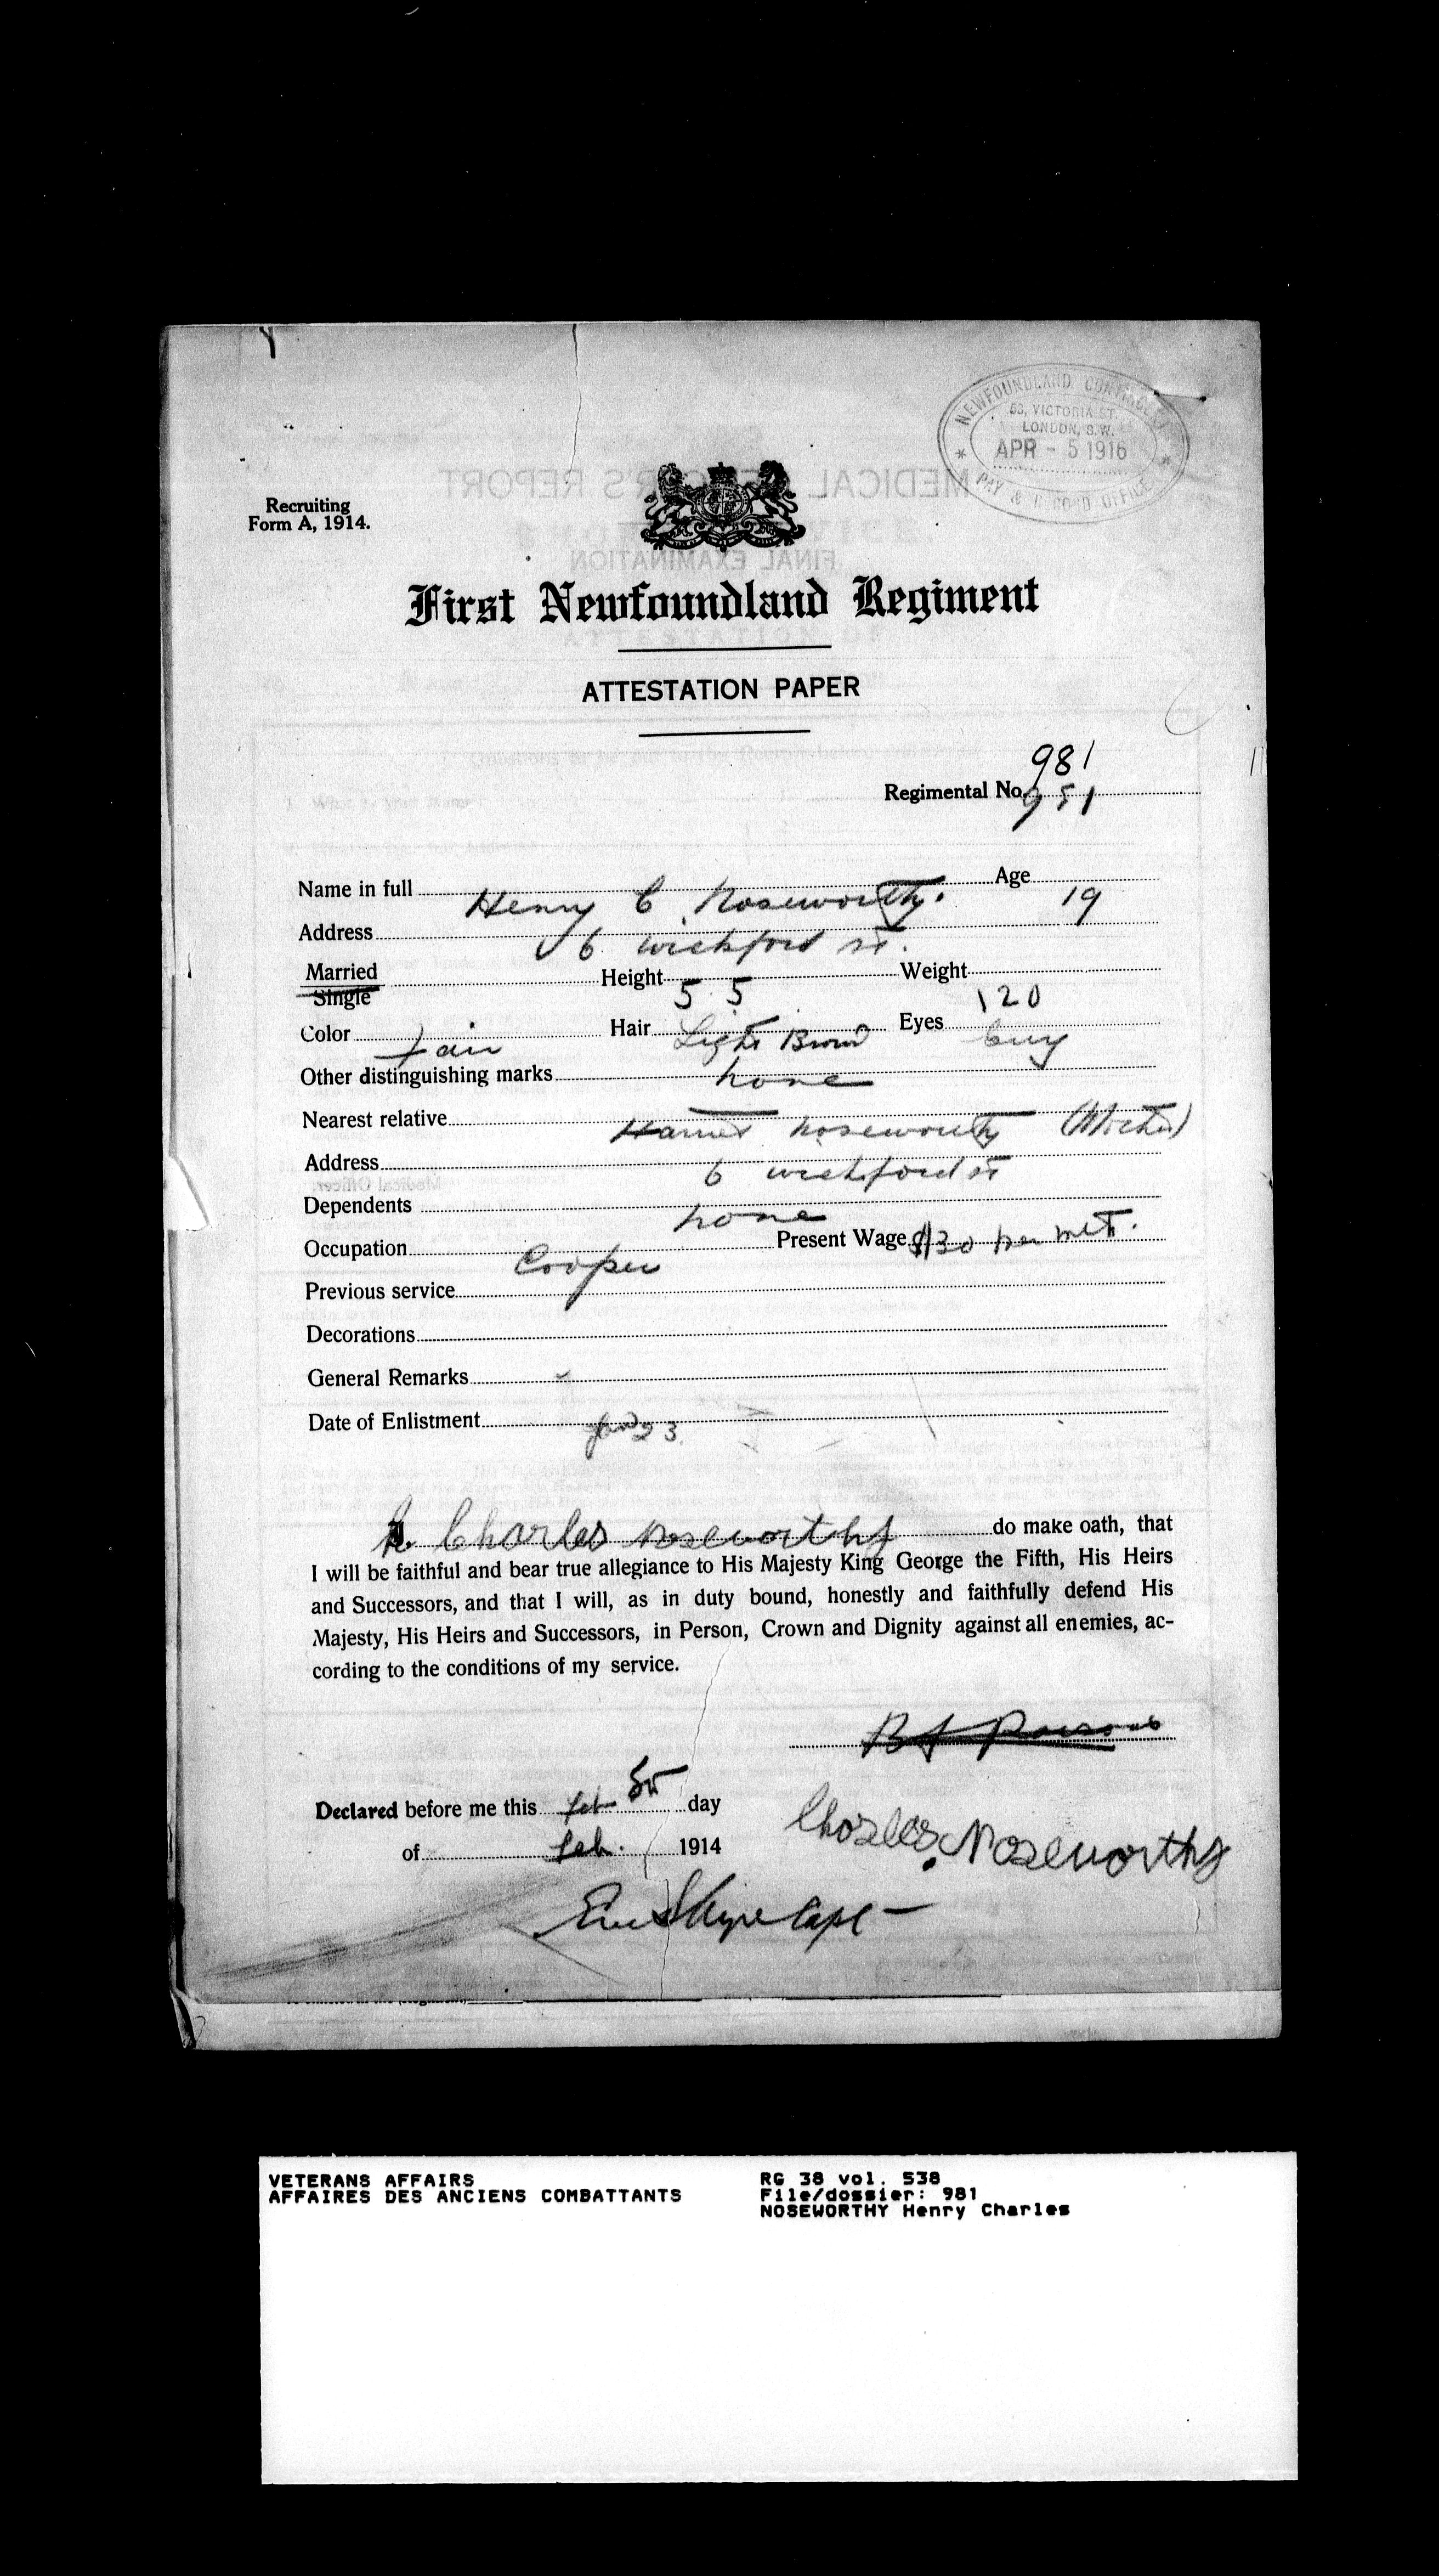 NEWFOUNDLAND CONTINGENT
53, VICTORIA ST.
LONDON, S.W.
APR - 5 1916
PAY & RECORD OFFICE
Recruiting
Form A, 1914.
First Newfoundland Regiment
ATTESTATION PAPER
981
Regimental No. 951
Name in full Henry C Noseworthy. Age 19
Address 6 Wickford St.
Married Height 5 5 Weight 120
Single
Color Fair Hair Light Brown Eyes
Other distinguishing marks none
Nearest relative Harriet Noseworthy (Mother)
Address 6 Wickford St
Dependents none
Occupation Cooper Present Wage $30 per mth.
Previous service
Decorations
General Remarks
Date of Enlistment Jan 23.
I, Charles Noseworthy do make oath, that
I will be faithful and bear true allegiance to His Majesty King George the Fifth, His Heirs
and Successors, and that I will, as in duty bound, honestly and faithfully defend His
Majesty, His Heirs and Successors, in Person, Crown and Dignity against all enemies, ac-
cording to the conditions of my service.
Declared before me this day
of Feb. 1914
Charles Noseworthy
Capt
VETERANS AFFAIRS
AFFAIRES DES ANCIENS COMBATTANTS
RG 38 vol. 538
File/dossier: 981
NOSEWORTHY Henry Charles